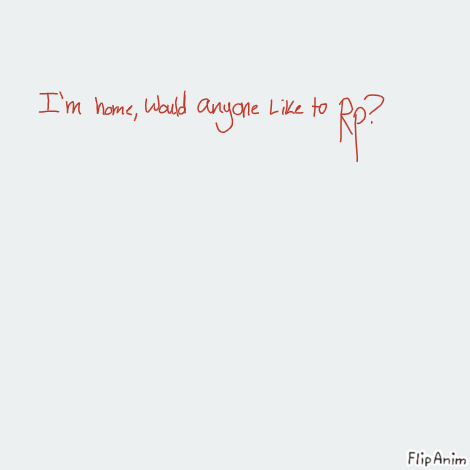 I'm home, Would anyone Like to Rp?
FlipAnim